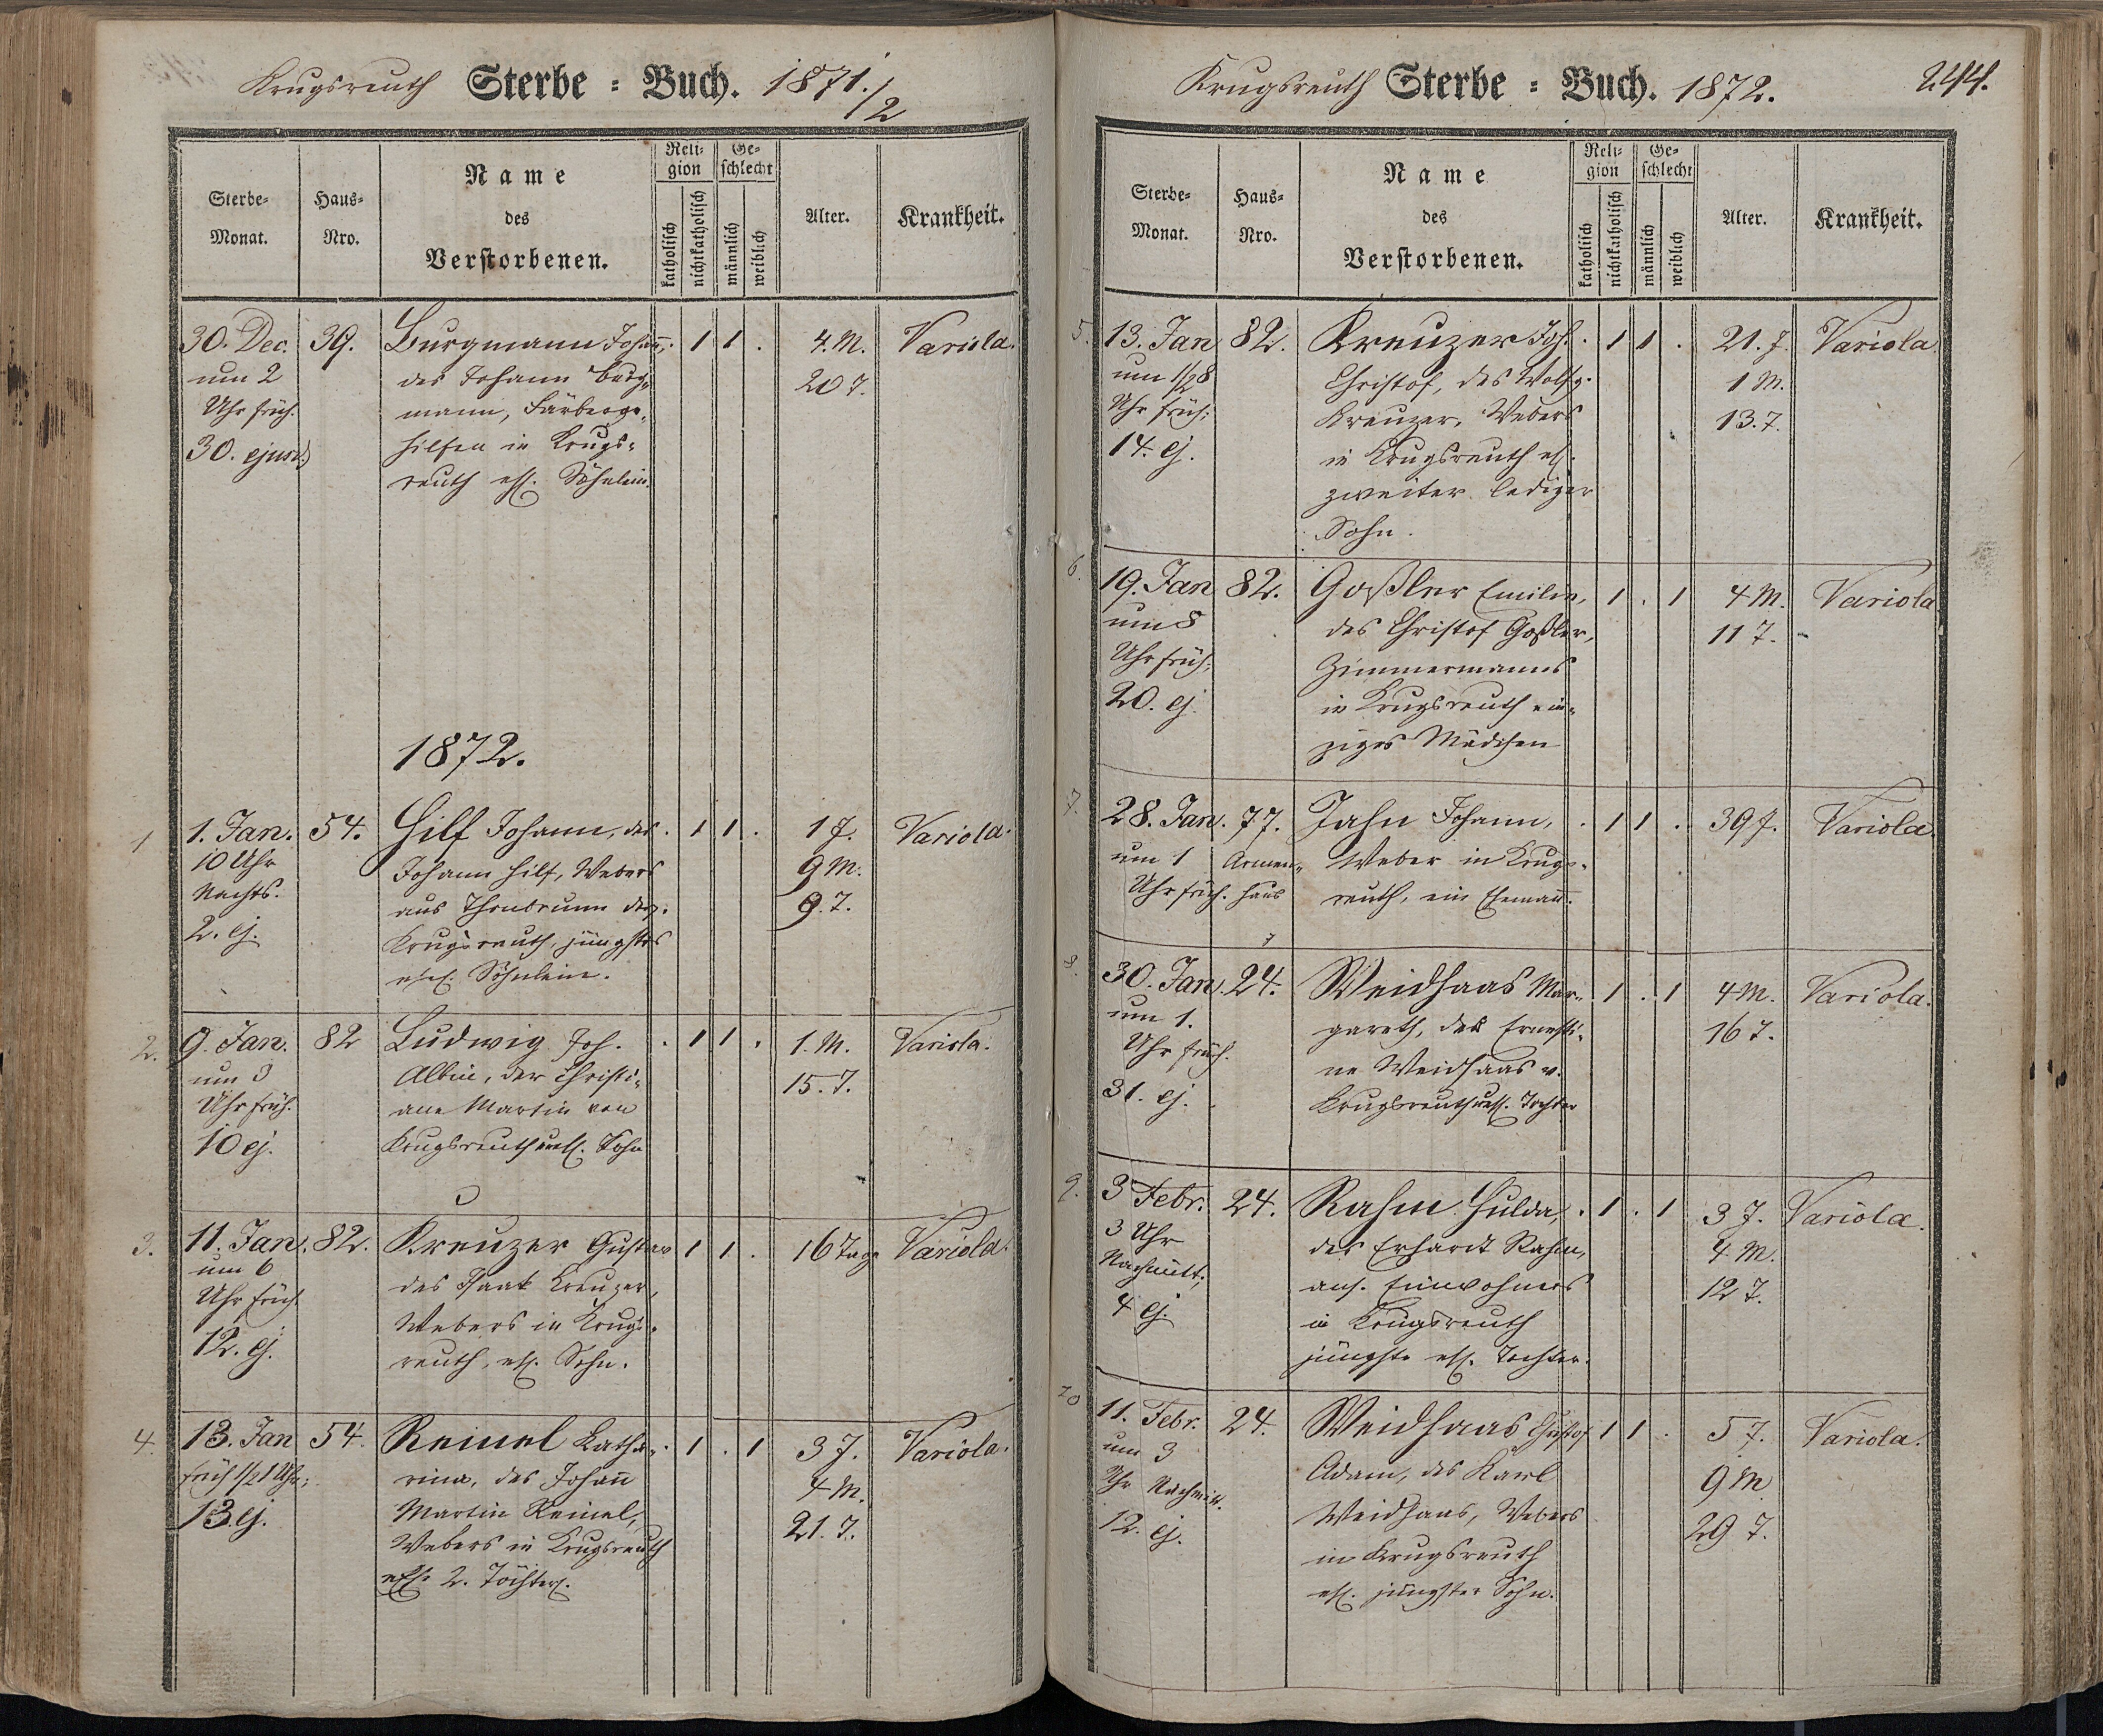 Krugsreuth Sterbe = Buch. 1871./2
Sterbe-
Monat.
Haus-
Nro.
Name
des
Verstorbenen.
Reli-
gion
katholisch
nichtkatholisch
Ge-
schlecht
männlich
weiblich
Alter.
Krankheit.
30. Dec. 39. Burgmann Johann, . 1 1 . 4. M. Variola.
um 2 des Johann Burg- 20 T.
Uhr früh. mann, Färberge-
30. ejusd. hilfen in Krugs-
reuth ehl. Söhnlein.
1872.
1 1. Jan. 54. Hilf Johann, des . 1 1 . 1 J. Variola.
10 Uhr Johann Hilf, Webers 9 M.
Nachts. aus Thonbrunn derz. 9. T.
2. ej. Krugsreuth, jüngstes
ehel. Söhnlein.
2. 9. Jan. 82 Ludwig Joh. . 1 1 . 1. M. Variola.
um 3 Albin, der Christi- 15. T.
Uhr früh. ane Martin von
10 ej. Krugsreuth unehl. Sohn
3. 11. Jan. 82. Kreuzer Gustav 1 1 . 16 Tage Variola.
um 6 des Isaak Kreuzer,
Uhr früh. Webers in Krugs-
12. ej. reuth, ehl. Sohn.
4. 13. Jan 54. Reinel Katha- . 1 . 1 3 J. Variola.
früh 1/2 1 Uhr; rina, des Johann 4 M.
13. ej. Martin Reinel, 21. T.
Webers in Krugsreuth
ehl. 2. Töchterl.
Krugsreuth Sterbe = Buch. 1872. 244.
Sterbe-
Monat.
Haus-
Nro.
Name
des
Verstorbenen.
Reli-
gion
katholisch
nichtkatholisch
Ge-
schlecht
männlich
weiblich
Alter.
Krankheit.
5. 13. Jan 82. Kreuzer Joh. . 1 1 . 21. J. Variola.
um 1/2 8 Christof, des Wolfg. 1 M.
Uhr früh; Kreuzer, Webers 13. T.
14. ej. in Krugsreuth ehl.
zweiter lediger
Sohn.
6. 19. Jan 82. Goßler Emilie, 1 . 1 4 M. Variola
um 8 des Christof Goßler, 11 T.
Uhr früh; Zimmermanns
20. ej. in Krugsreuth ein-
ziges Mädchen
7. 28. Jan. 77. Jahn Johann, . 1 1 . 39 J. Variola.
um 1 Armen- Weber in Krugs-
Uhr früh. haus reuth, ein Ehemann.
8. 30. Jan. 24. Weidhaas Mar- 1 . 1 4 M. Variola.
um 1. gareth, der Ernesti- 16 T.
Uhr früh. ne Weidhaas v.
31. ej. Krugsreuth unehl. Tochter
9. 3 Febr. 24. Rahm Hulda, . 1 . 1 3 J. Variola.
3 Uhr des Erhardt Rahm, 4 M.
Nachmitt; ans. Einwohners 12 T.
4 ej. in Krugsreuth
jüngste ehl. Tochter.
10 11. Febr. 24. Weidhaas Christof 1 1 . 5 J. Variola.
um 3 Adam, des Karl 9 M
Uhr Nachmitt. Weidhaas, Webers 29 T.
12. ej. in Krugsreuth
ehl. jüngster Sohn.